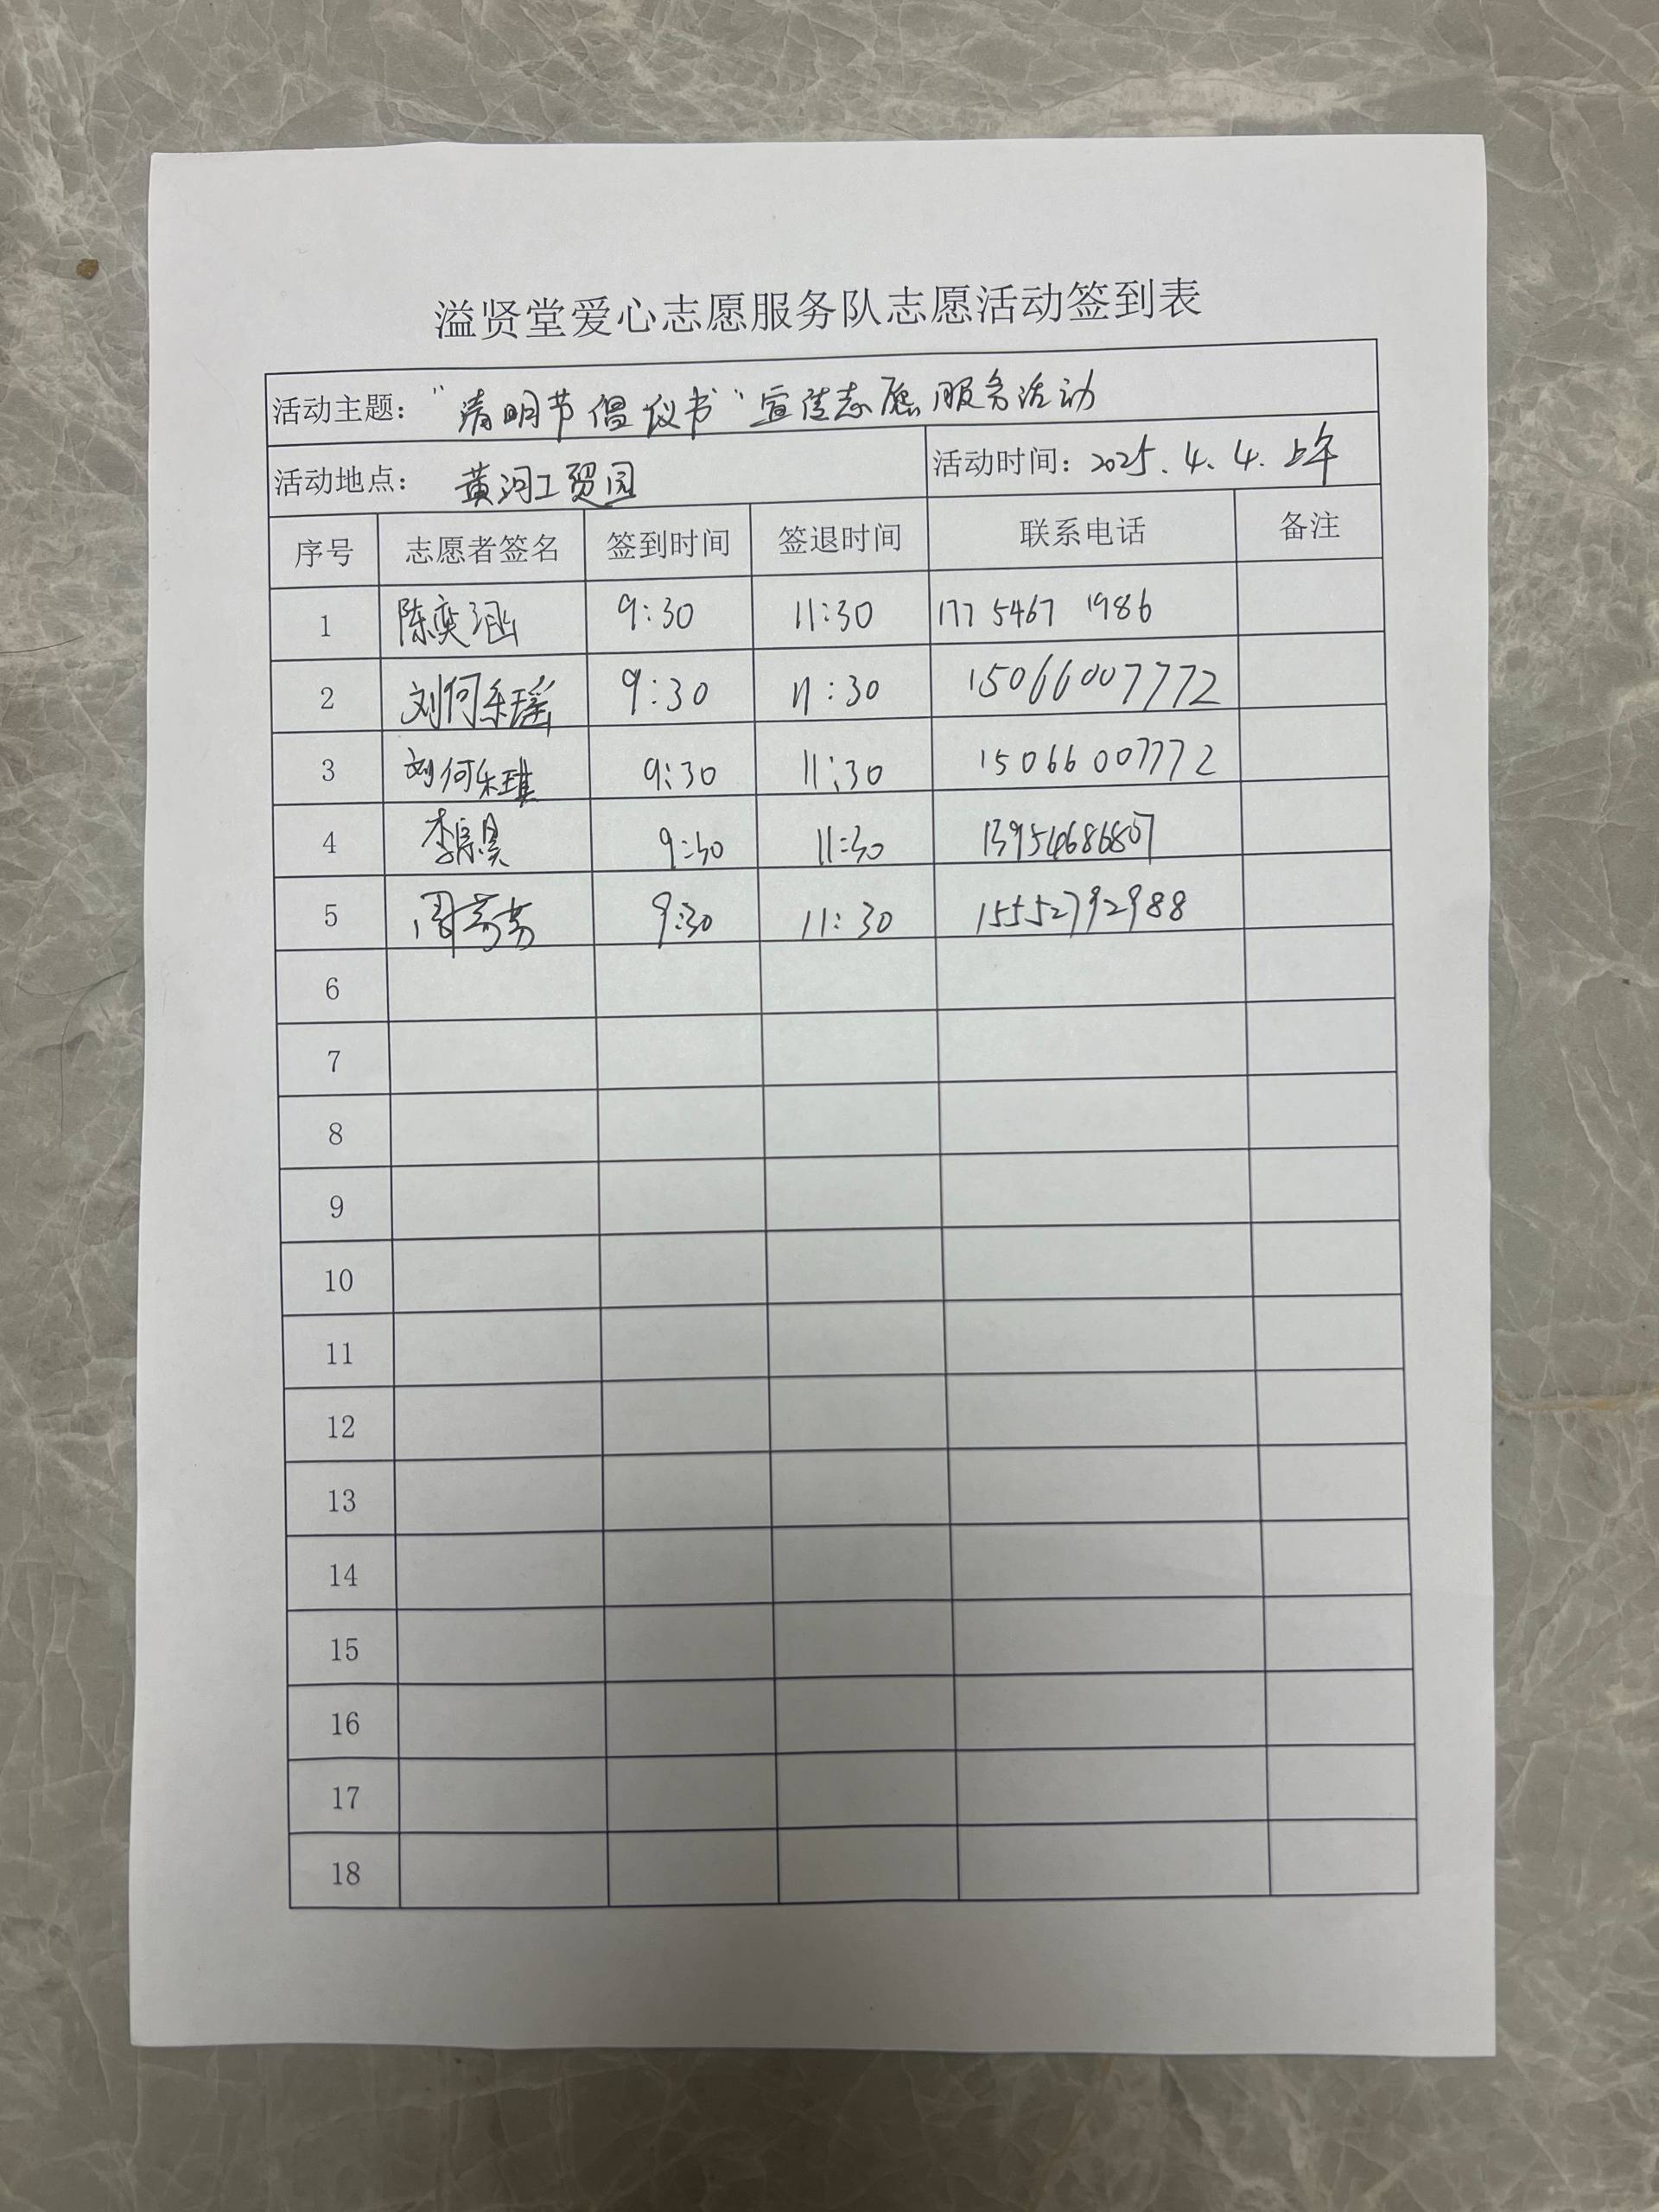 溢贤堂爱心志愿服务队志愿活动签到表
活动主题： “清明节倡议书”宣传志愿服务活动
活动地点： 黄河工贸园 活动时间：2025.4.4.上午
序号 志愿者签名 签到时间 签退时间 联系电话 备注
1 陈奕涵 9:30 11:30 177 5467 1986
2 刘何乐瑶 9:30 11:30 15066007772
3 刘何乐琪 9:30 11:30 15066007772
4 李宸昊 9:30 11:30 13954686807
5 周芳芳 9:30 11:30 15552792988
6
7
8
9
10
11
12
13
14
15
16
17
18